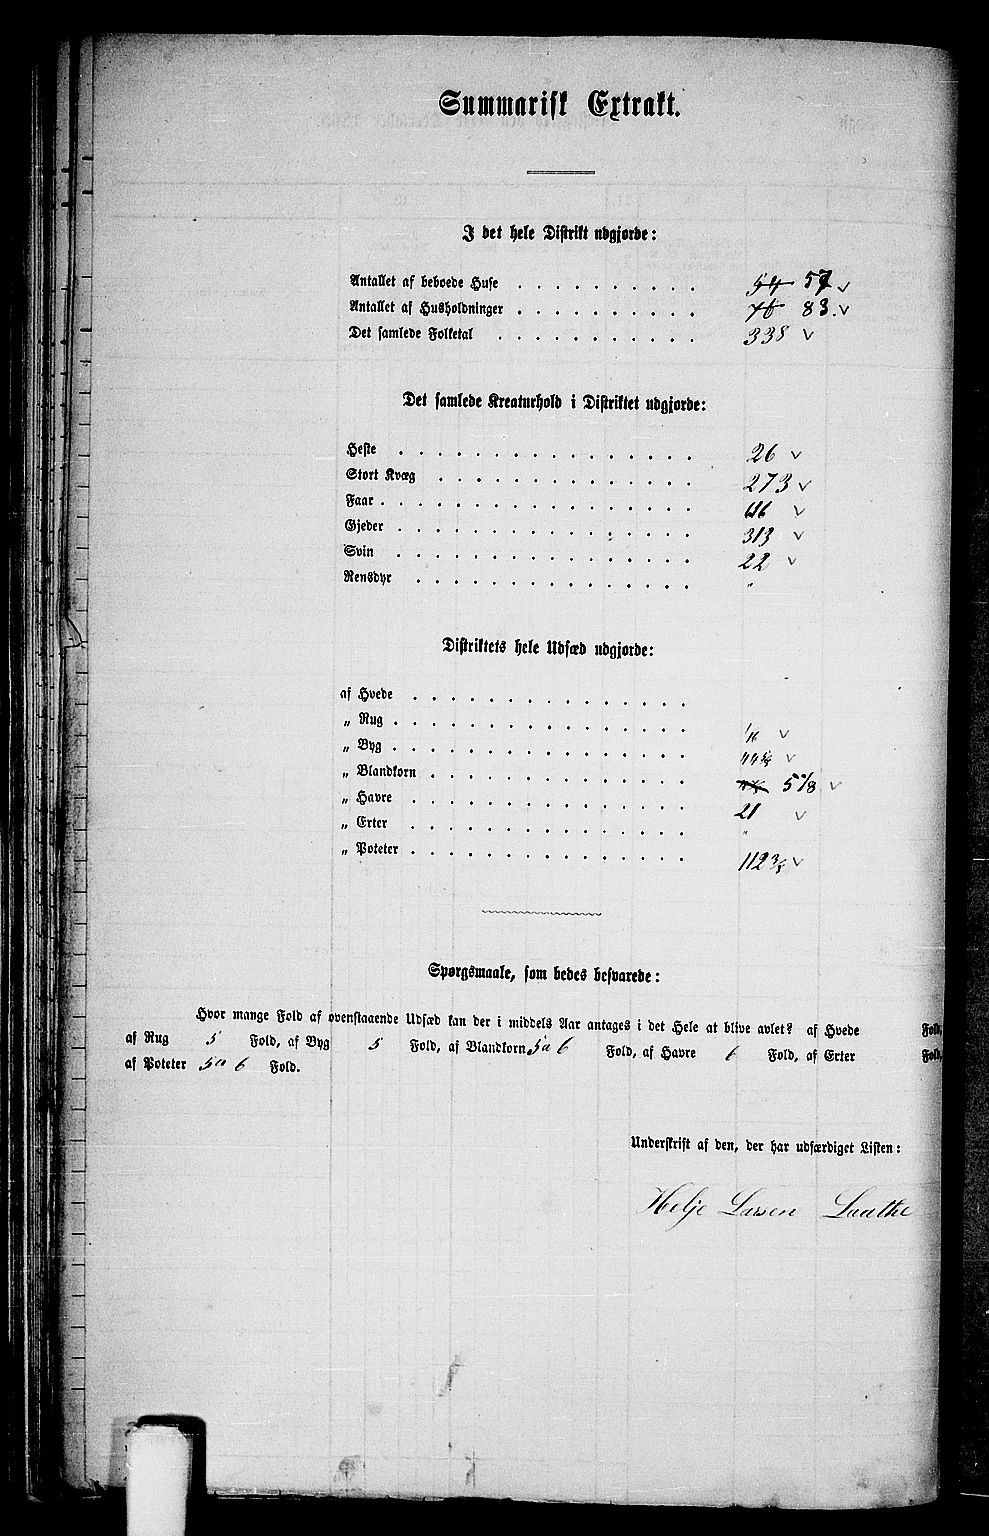 Summarisk Extrakt.
I det hele Distrikt udgjorde:
Antallet af beboede Huse . . . . . . . . . . 54 57 v
Antallet af Husholdninger . . . . . . . . . . 83. v
Det samlede Folketal . . . . . . . . . . . 338 v
Det samlede Kreaturhold i Distriktet udgjorde:
Heste . . . . . . . . . . . . . . . . . 26 v
Stort Kvæg . . . . . . . . . . . . . . . 273 v
Faar . . . . . . . . . . . . . . . . . . v
Gjeder . . . . . . . . . . . . . . . . . 313 v
Svin . . . . . . . . . . . . . . . . . 22 v
Rensdyr . . . . . . . . . . . . . . . . "
Distriktets hele Udsæd udgjorde:
af Hvede . . . . . . . . . . . . . . .
„ Rug . . . . . . . . . . . . . . . . v
„ Byg . . . . . . . . . . . . . . . . v
„ Blandkorn . . . . . . . . . . . . . . 5 1/8 v
„ Havre . . . . . . . . . . . . . . . 21 v
„ Erter . . . . . . . . . . . . . . . "
„ Poteter . . . . . . . . . . . . . . . 112 v
Spørgsmaale, som bedes besvarede:
Hvor mange Fold af ovenstaaende Udsæd kan der i middels Aar antages i det Hele at blive avlet? af Hvede Fold,
af Rug 5 Fold, af Byg 5 Fold, af Blandkorn 5 a 6 Fold, af Havre 6 Fold, af Erter Fold,
af Poteter 5 a 6 Fold.
Underskrift af den, der har udfærdiget Listen:
Helje Larsen